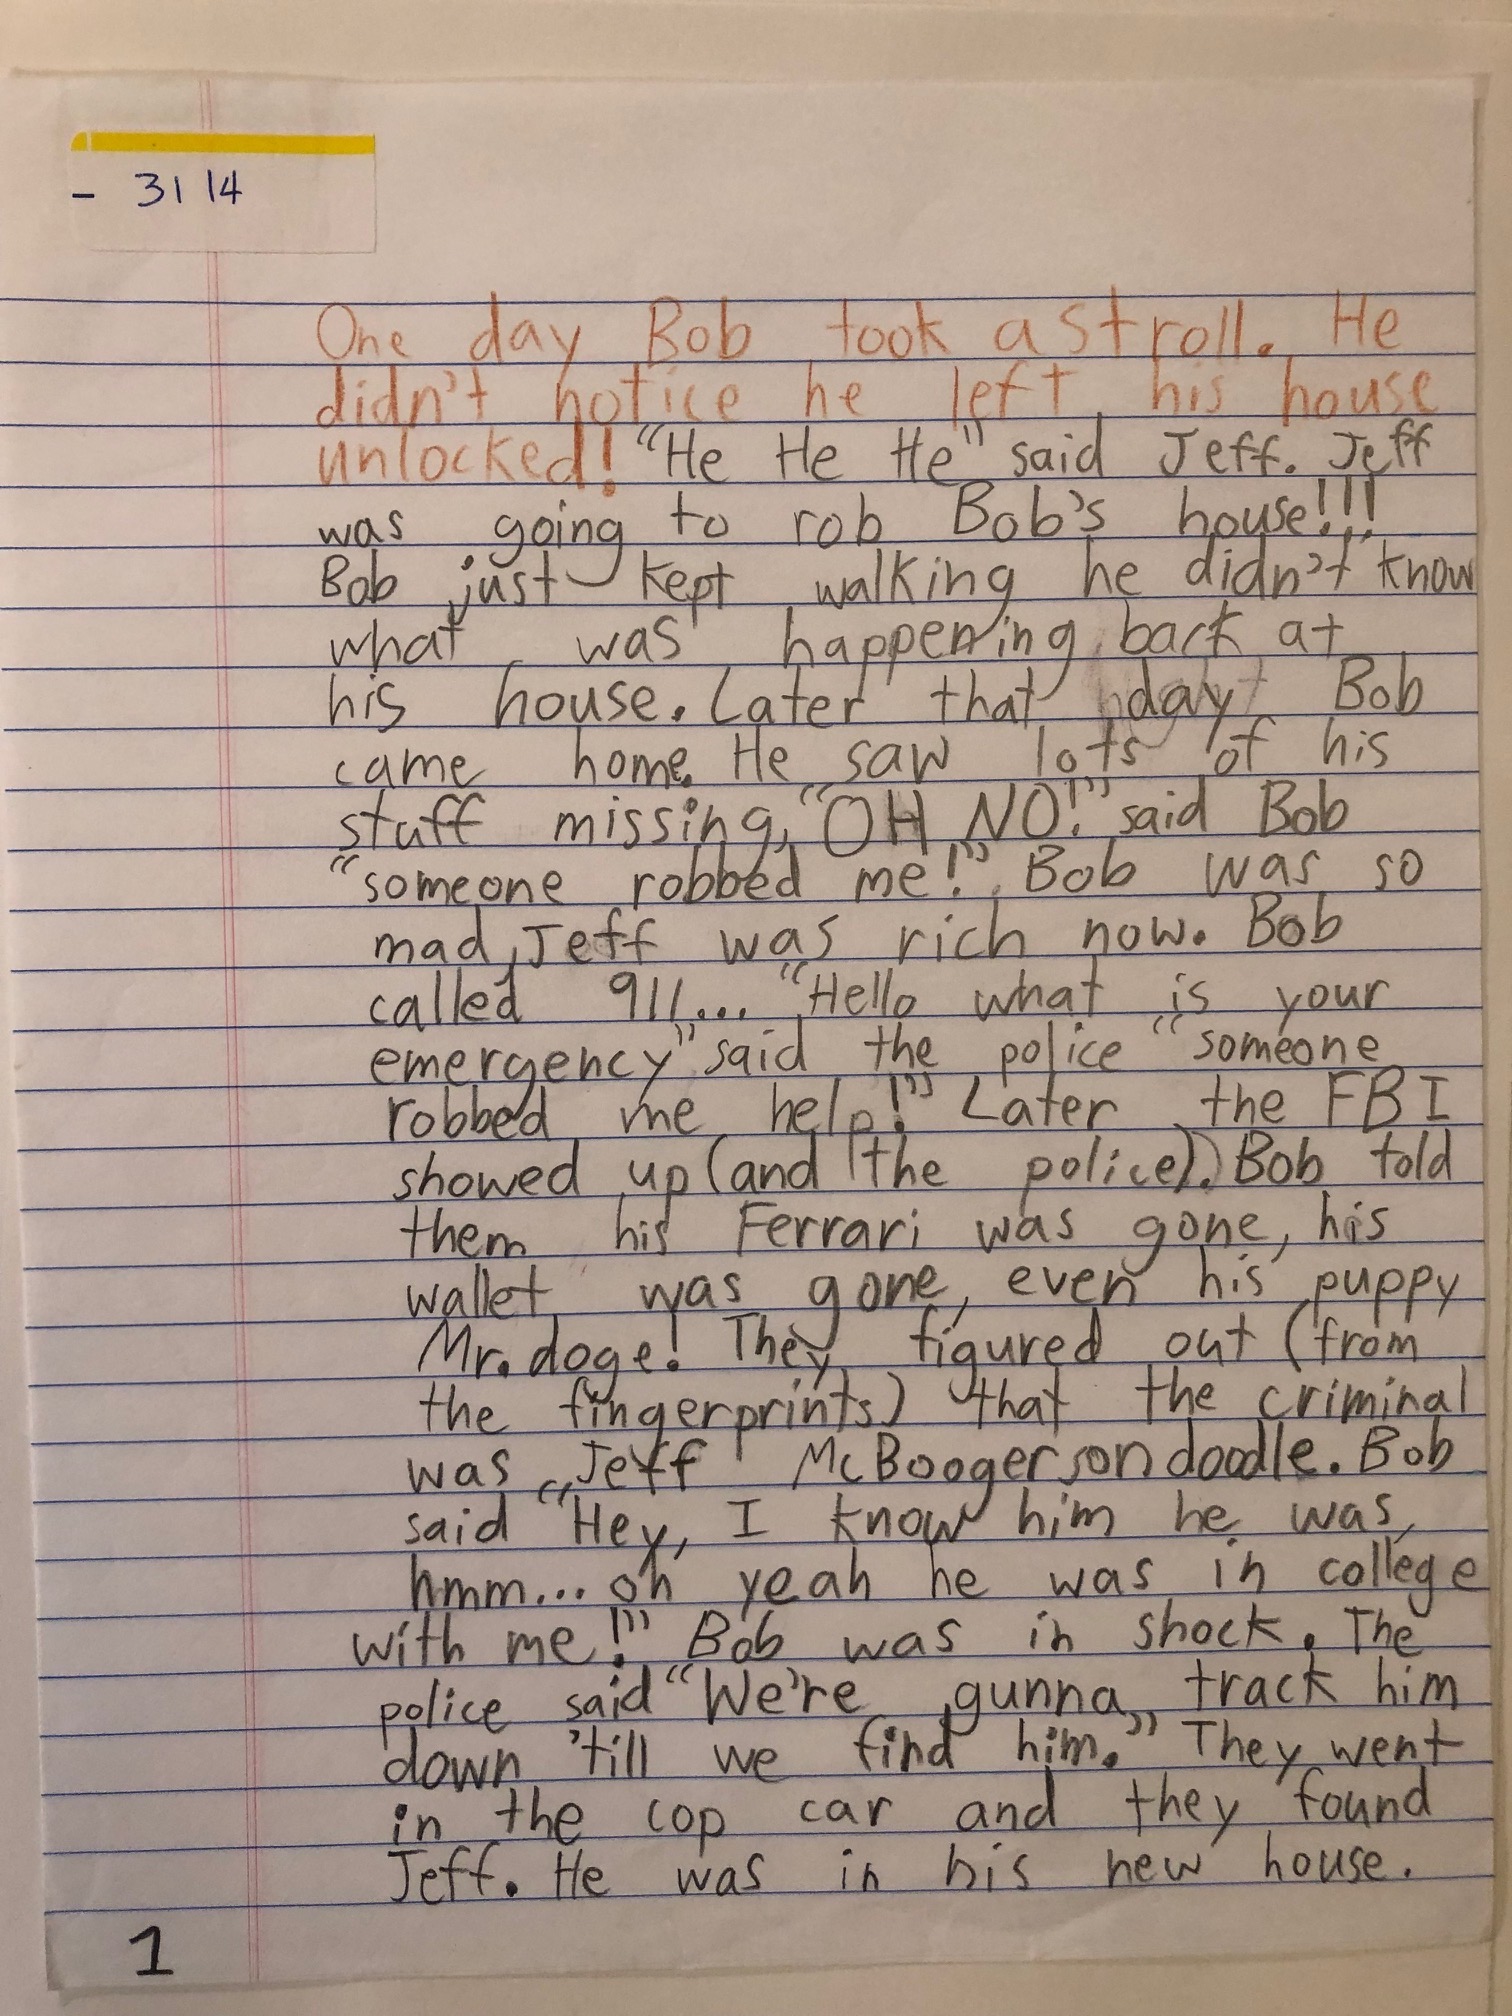 - 31 14
One day Bob took a stroll. He
didn't notice he left his house
unlocked! "He He He" said Jeff. Jeff
was going to rob Bob's house!!!
Bob just kept walking he didn't know
what was happening back at
his house. Later that day Bob
came home. He saw lots of his
stuff missing, "OH NO!" said Bob
"someone robbed me!" Bob was so
mad, Jeff was rich now. Bob
called 911... "Hello what is your
emergency" said the police "someone
robbed me help!" Later the FBI
showed up (and the police). Bob told
them his Ferrari was gone, his
wallet was gone, even his puppy
Mr. doge! They figured out (from
the fingerprints) that the criminal
was Jeff McBoogersondoodle. Bob
said "Hey, I know him he was,
hmm... oh yeah he was in college
with me!" Bob was in shock. The
police said "We're gunna track him
down 'till we find him." They went
in the cop car and they found
Jeff. He was in his new house.
1